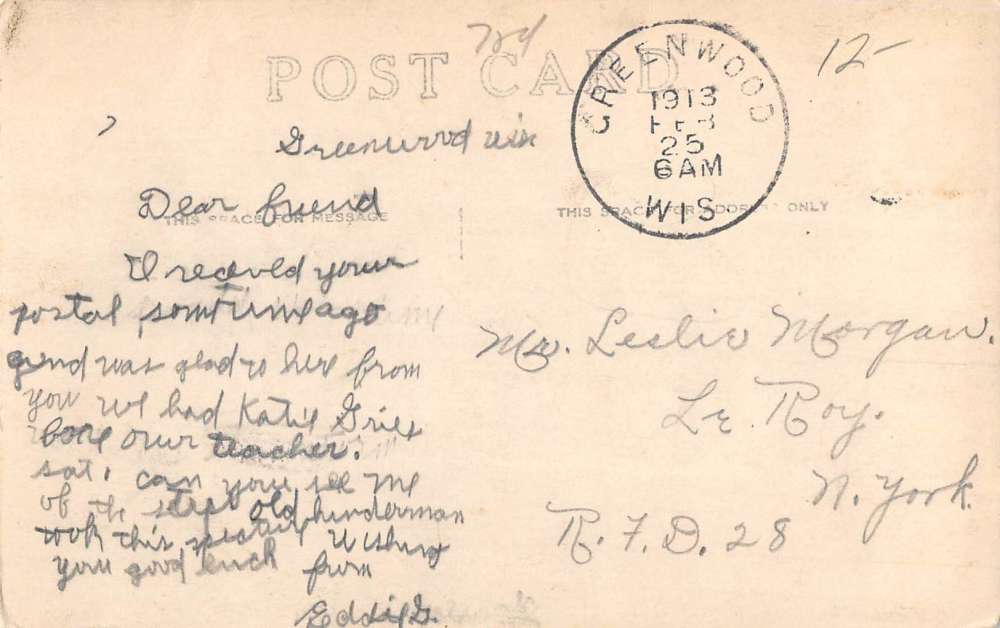 POST CARD
12-
GREENWOOD
1913
FEB
25
6AM
WIS
Greenwood wis
Dear friend
THIS SPACE FOR MESSAGE
THIS SPACE FOR ADDRESS ONLY
I receved your
postal somtime ago
and was glad to here from
you we had Katie Gries
our teacher.
sat. can you see me
of the steps old hinderman
took this picture wishing
you good luck from
Eddie G.
Mr. Leslie Morgan.
Le Roy.
N. York.
R. F. D. 28